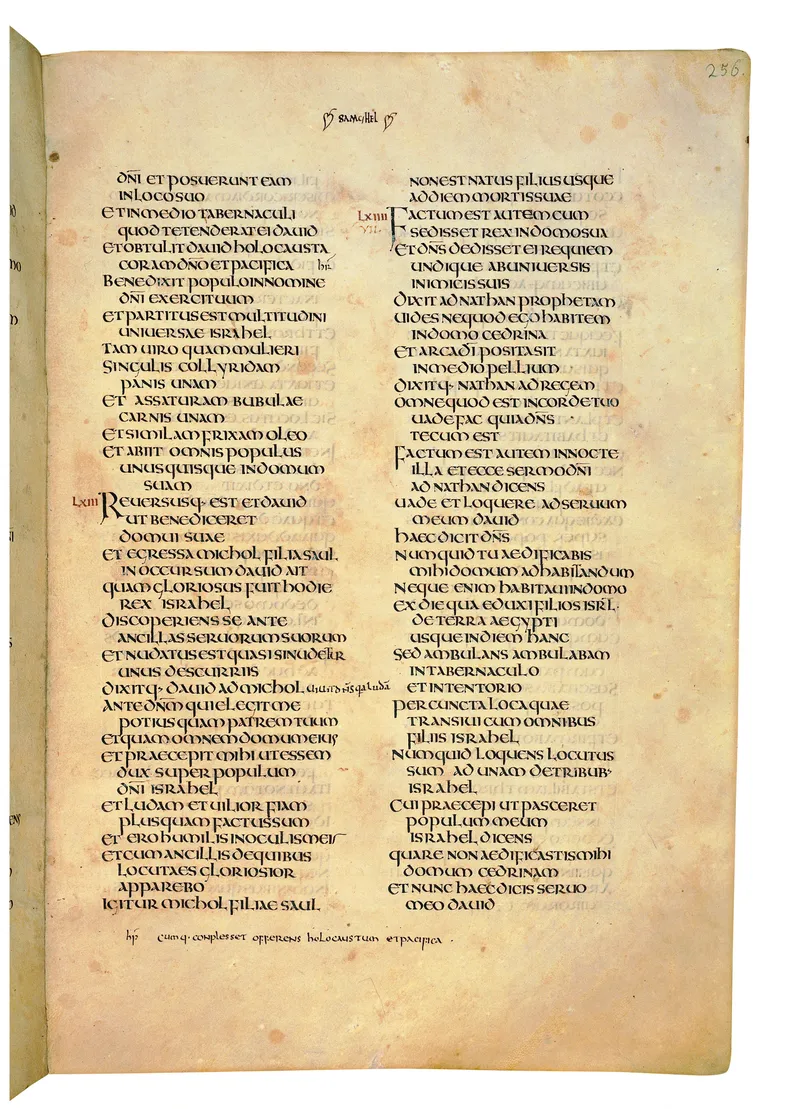 256
SAMUHEL
DN̄I ET POSUERUNT EAM
IN LOCO SUO
ET IN MEDIO TABERNACULI
QUOD TETENDERAT EI DAUID
ET OBTULIT DAUID HOLOCAUSTA
CORAM DN̄O ET PACIFICA hp̄
BENEDIXIT POPULO IN NOMINE
DN̄I EXERCITUUM
ET PARTITUS EST MULTITUDINI
UNIUERSAE ISRAHEL
TAM UIRO QUAM MULIERI
SINGULIS COLLYRIDAM
PANIS UNAM
ET ASSATURAM BUBULAE
CARNIS UNAM
ET SIMILAM FRIXAM OLEO
ET ABIIT OMNIS POPULUS
UNUSQUISQUE IN DOMUM
SUAM
LXIII REUERSUSQ· EST ET DAUID
UT BENEDICERET
DOMUI SUAE
ET EGRESSA MICHOL FILIA SAUL
IN OCCURSUM DAUID AIT
QUAM GLORIOSUS FUIT HODIE
REX ISRAHEL
DISCOPERIENS SE ANTE
ANCILLAS SERUORUM SUORUM
ET NUDATUS EST QUASI SI NUDETUR
UNUS DE SCURRIIS
DIXITQ· DAUID AD MICHOL
ANTE DN̄M QUI ELEGIT ME
POTIUS QUAM PATREM TUUM
ET QUAM OMNEM DOMUM EIUS
ET PRAECEPIT MIHI UT ESSEM
DUX SUPER POPULUM
DN̄I ISRAHEL
ET LUDAM ET UILIOR FIAM
PLUS QUAM FACTUS SUM
ET ERO HUMILIS IN OCULIS MEIS
ET CUM ANCILLIS DE QUIBUS
LOCUTA ES GLORIOSIOR
APPAREBO
IGITUR MICHOL FILIAE SAUL
hp̄ cumq· conplesset offerens holocaustum et pacifica ·
NON EST NATUS FILIUS USQUE
AD DIEM MORTIS SUAE
LXIIII FACTUM EST AUTEM CUM
VII. SEDISSET REX IN DOMO SUA
ET DN̄S DEDISSET EI REQUIEM
UNDIQUE AB UNIUERSIS
INIMICIS SUIS
DIXIT AD NATHAN PROPHETAM
UIDES NE QUOD EGO HABITEM
IN DOMO CEDRINA
ET ARCA DĪ POSITA SIT
IN MEDIO PELLIUM
DIXITQ· NATHAN AD REGEM
OMNE QUOD EST IN CORDE TUO
UADE FAC QUIA DN̄S
TECUM EST
FACTUM EST AUTEM IN NOCTE
ILLA ET ECCE SERMO DN̄I
AD NATHAN DICENS
UADE ET LOQUERE AD SERUUM
MEUM DAUID
HAEC DICIT DN̄S
NUMQUID TU AEDIFICABIS
MIHI DOMUM AD HABITANDUM
NEQUE ENIM HABITAUI IN DOMO
EX DIE QUA EDUXI FILIOS ISRL̄·
DE TERRA AEGYPTI
USQUE IN DIEM HANC
SED AMBULANS AMBULABAM
IN TABERNACULO
ET IN TENTORIO
PER CUNCTA LOCA QUAE
TRANSIUI CUM OMNIBUS
FILIIS ISRAHEL
NUMQUID LOQUENS LOCUTUS
SUM AD UNAM DE TRIBUB·
ISRAHEL
CUI PRAECEPI UT PASCERET
POPULUM MEUM
ISRAHEL DICENS
QUARE NON AEDIFICASTIS MIHI
DOMUM CEDRINAM
ET NUNC HAEC DICIS SERUO
MEO DAUID